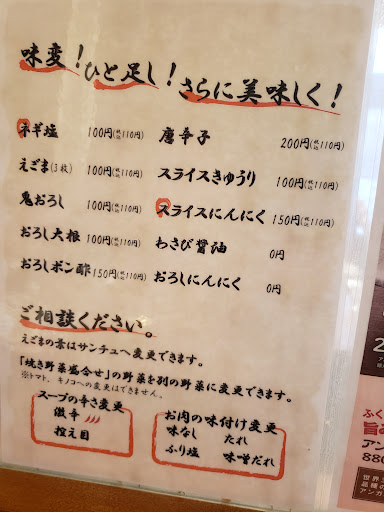 味変！ひと足し！さらに美味しく！
ネギ塩 100円(税込110円)
えごま(3枚) 100円(税込110円)
鬼おろし 100円(税込110円)
おろし大根 100円(税込110円)
おろしポン酢 150円(税込110円)
唐辛子 200円(税込110円)
スライスきゅうり 100円(税込110円)
スライスにんにく 150円(税込110円)
わさび醤油 0円
おろしにんにく 0円
ご相談ください。
えごまの葉はサンチュへ変更できます。
「焼き野菜盛合せ」の野菜を別の野菜に変更できます。
※トマト、キノコへの変更はできません。
スープの辛さ変更
激辛
控え目
お肉の味付け変更
味なし たれ
ふり塩 味噌だれ
ふく
旨み
アン
880
世界
品種の
アンガ